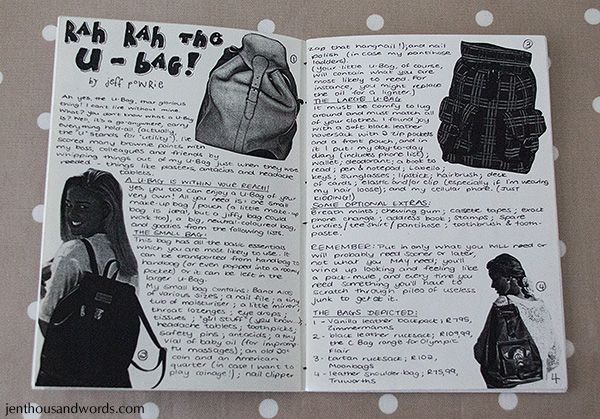 RAH RAH THE
U-BAG!
by jeff powrie
①
Ah yes, the U-Bag, that glorious
thing! I can't live without mine.
What? you don't know what a U-Bag
is? Hey, it's a go-anywhere, carry
everything hold-all. (actually,
the U stands for 'utility'). I've
scored many brownie points with
my boss, colleagues and friends by
whipping things out of my U-Bag just when they were
needed - things like plasters, antacids and headache
tablets.
A U-BAG IS WITHIN YOUR REACH!
yes, you too can enjoy a U-Bag of your
very own! All you need is: one small
make-up bag/pouch (a little make-up
bag is ideal, but a jiffy bag could
work too); a big, neutral-coloured bag,
and goodies from the following lists.
THE SMALL BAG:
This bag has all the basic essentials
which you are most likely to use. It
can be transported from handbag to
handbag (or even popped into a roomy
pocket) or it can be left in the
larger U-Bag.
My small bag contains: Band Aids
of various sizes; a nail file; a tiny
tub of moisturiser; a little mirror;
throat lozenges; eye drops;
tissues; 'girl stuff' (you know...);
headache tablets; toothpicks;
safety pins; antacids; a tiny
vial of baby oil (for impromp-
tu massages); an old 20c
coin and an American
quarter (in case I want to
play coinage!); nail clipper
③
②
zap that hangnail!); and nail
polish (in case my pantihose
ladders).
(Your little U-Bag, of course,
will contain what you are
most likely to need. For
instance, you might replace
the for a lighter)
THE LARGE U-BAG
It must be comfy to lug
around and must match all
of your clothes. I found joy
with a soft black leather
haversack with 2 zip pockets
and a front pouch, and in
it I put: my day-to-day
diary (includes phone list);
wallet; deodorant; a book to
read; pen & notepad; Labello;
keys; sunglasses; lipstick; hairbrush; deck
of cards; elastic and/or clip (especially if I'm wearing
my hair loose); and my cellular phone (Just
KIDDING!)
SOME OPTIONAL EXTRAS:
Breath mints; chewing gum; cassette tapes; exact
phone change; address book; stamps; spare
undies/tee-shirt/pantihose; toothbrush & tooth-
paste.
REMEMBER: Put in only what you WILL need or
will probably need sooner or later,
not what you MAY need; you'll
wind up looking and feeling like
a pack-mule, and every time you
need something you'll have to
scratch through piles of useless
junk to get at it.
④
THE BAGS DEPICTED:
1 - Vanilla leather backpack; R795,
Zimmermanns
2 - black leather rucksack; R109,99,
the C Bag range for Olympic
Flair
3 - tartan rucksack; R102,
Moonbags
4 - leather shoulder-bag; R75,99,
Truworths
4
jenthousandwords.com